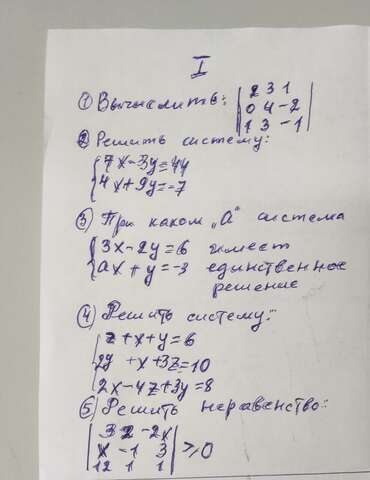 I
① Вычислить: | 2 3 1 |
| 0 4 -2 |
| 1 3 -1 |
② Решить систему:
{ 7x-3y=44
{ 4x+9y=-7
③ При каком „а" система
{ 3x-2y=6 имеет
{ ax+y=-3 единственное
решение
④ Решить систему:
{ z+x+y=6
{ 2y+x+3z=10
{ 2x-4z+3y=8
⑤ Решить неравенство:
| 3 2 -2x |
| x -1 3 | ≥0
| 12 1 1 |